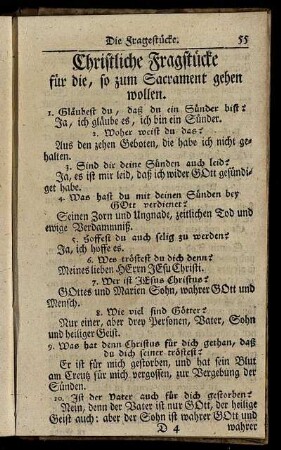 Die Fragestücke. 55
Christliche Fragstücke
für die, so zum Sacrament gehen
wollen.
1. Gläubest du, daß du ein Sünder bist?
Ja, ich gläube es, ich bin ein Sünder.
2. Woher weist du das?
Aus den zehen Geboten, die habe ich nicht ge-
halten.
3. Sind dir deine Sünden auch leid?
Ja, es ist mir leid, daß ich wider GOtt gesündi-
get habe.
4. Was hast du mit deinen Sünden bey
GOtt verdienet?
Seinen Zorn und Ungnade, zeitlichen Tod und
ewige Verdammniß.
5. Hoffest du auch selig zu werden?
Ja, ich hoffe es.
6. Wes tröstest du dich denn?
Meines lieben HErrn JEsu Christi.
7. Wer ist JEsus Christus?
GOttes und Marien Sohn, wahrer GOtt und
Mensch.
8. Wie viel sind Götter?
Nur einer, aber drey Personen, Vater, Sohn
und heiliger Geist.
9. Was hat denn Christus für dich gethan, daß
du dich seiner tröstest?
Er ist für mich gestorben, und hat sein Blut
am Creutz für mich vergossen, zur Vergebung der
Sünden.
10. Ist der Vater auch für dich gestorben?
Nein, denn der Vater ist nur GOtt, der heilige
Geist auch: aber der Sohn ist wahrer GOtt und
D 4 wahrer